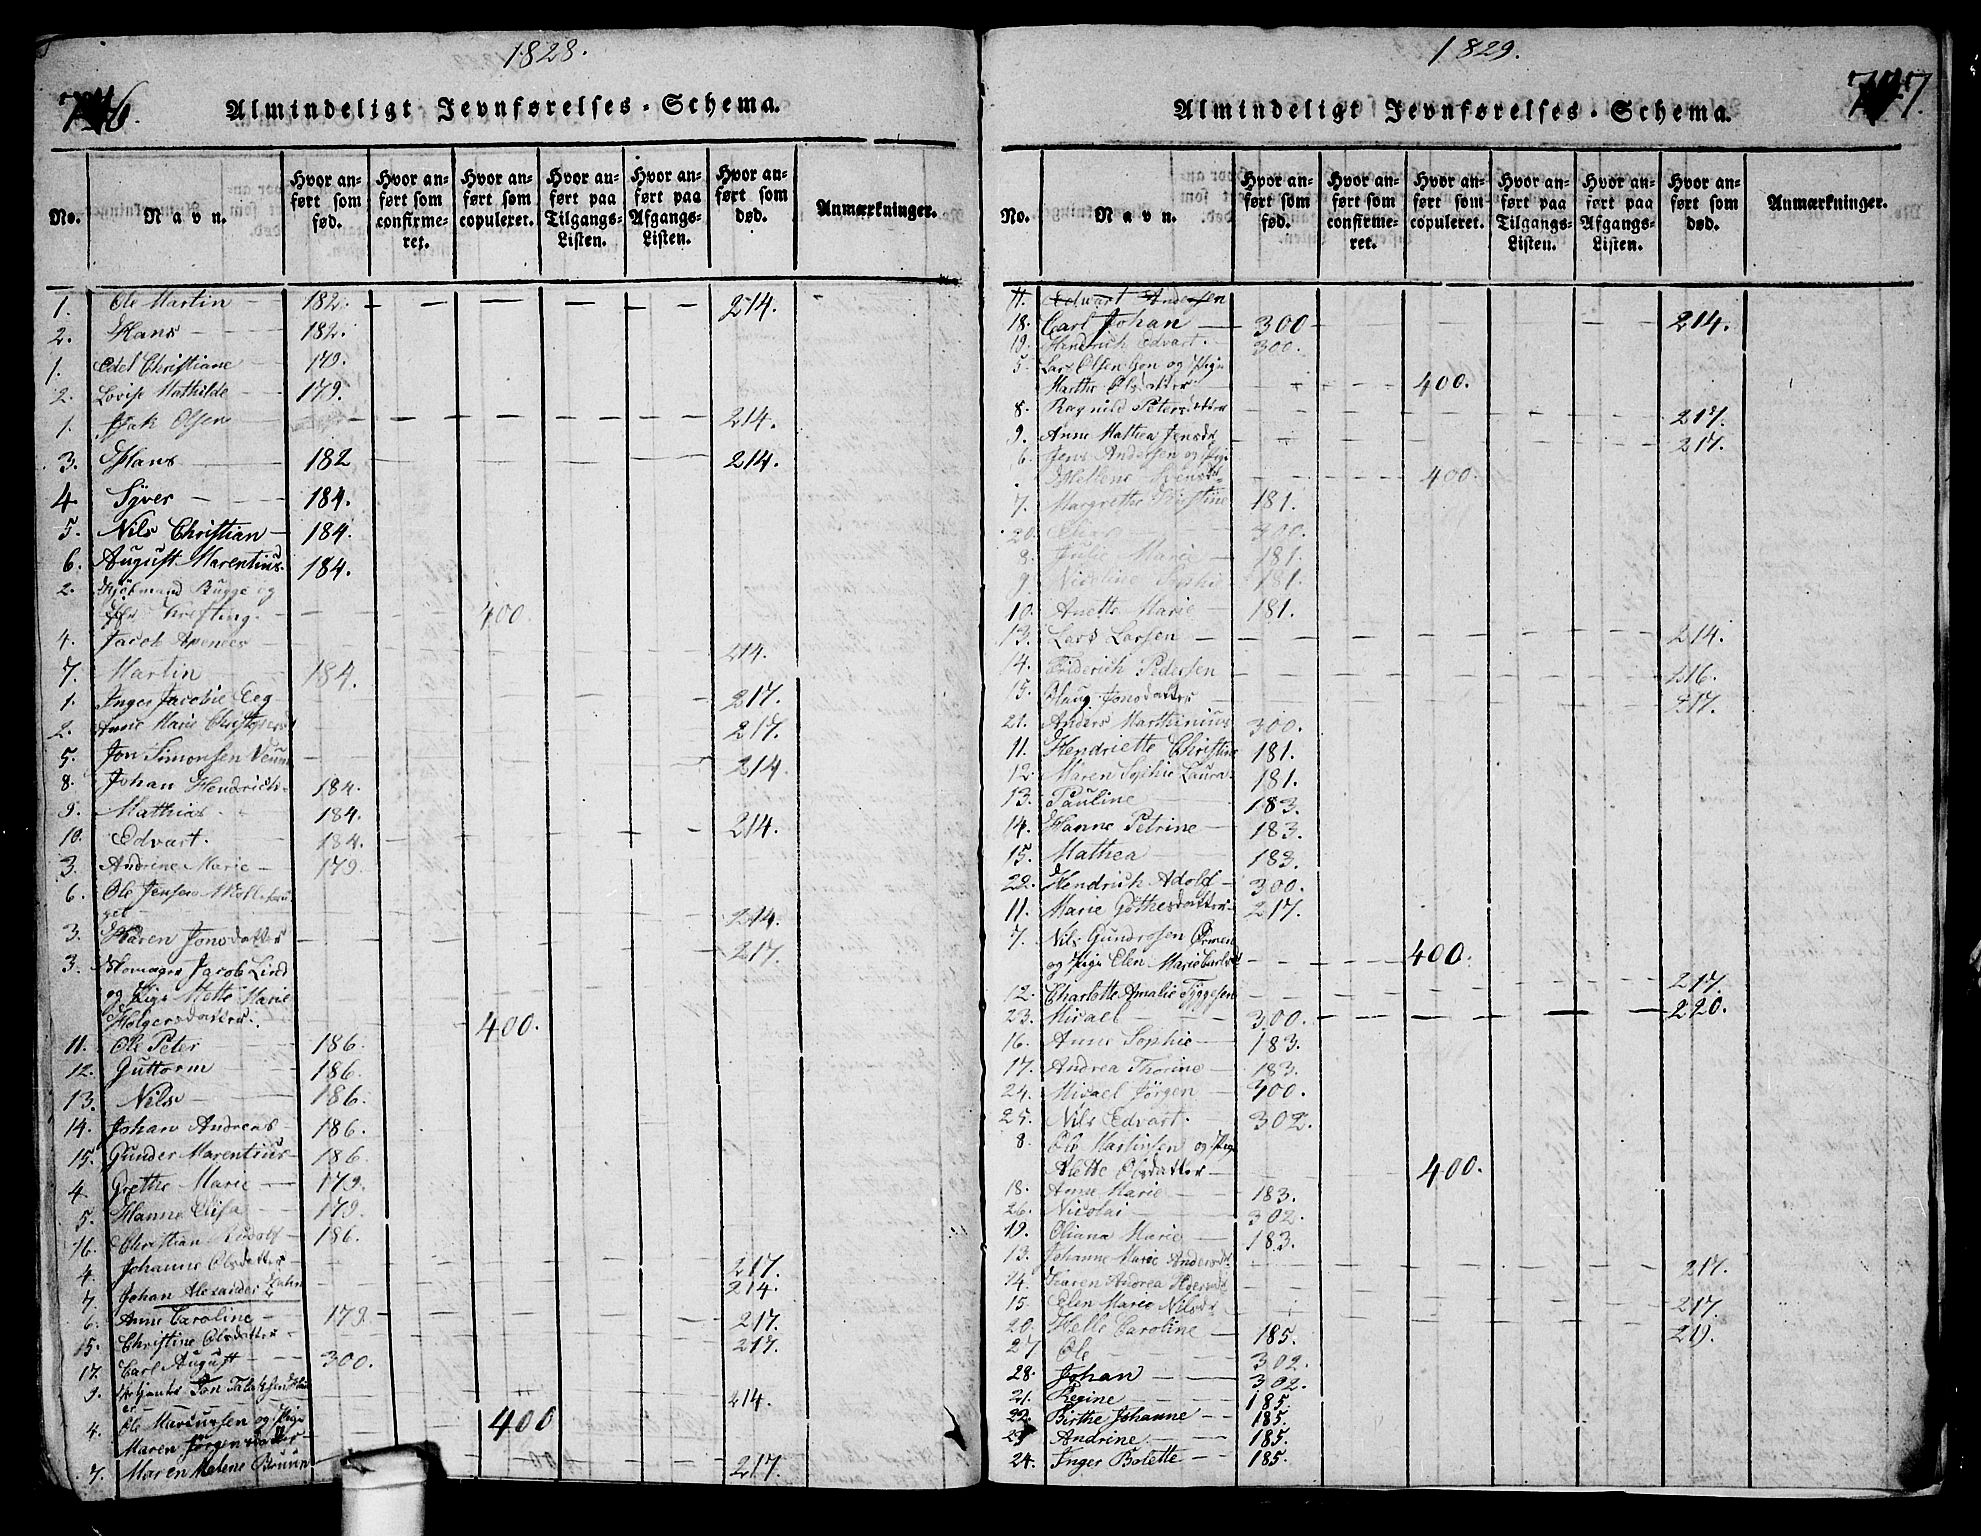 1828.
746.
Almindeligt Jevnførelses-Schema.
No.
Navn.
Hvor anført som fød.
Hvor anført som confirmeret.
Hvor anført som copuleret.
Hvor anført paa Tilgangs-Listen.
Hvor anført paa Afgangs-Listen.
Hvor anført som død.
Anmærkninger.
1. Ole Martin 182. 214.
2. Hans 182.
1. Edel Christiane 179.
2. Lovise Mathilde 179.
1. Olsen 214.
3. Hans 182 214.
4 Syver 184.
5. Nils Christian 184.
6. August Marentius 184.
2. Kjøbmand Bugge og
Krefting. 400
4. Jacob 214.
7. Martin 184.
1. Inger Jacobie Eeg 217.
2. Anne Marie 217.
5. Jon Simonsen Veum 214.
8. Johan Hendrich 184.
9. Mathias 184.
10. Edvart. 184. 214.
3. Andrine Marie 179
6. Ole Jensen
214.
3. Karen Jonsdatter 217.
3. Jacob Lind
og Pige Mette Marie
Holgersdatter. 400.
11. Ole Peter 186.
12. Guttorm 186.
13. Nils 186.
14. Johan Andreas 186.
15. Gunder Marentius 186.
4. Grethe Marie 179.
5. Hanne Elisa 179.
16. Christian Rudolf 186.
4. Johanne Olsdatter 217.
7. Johan Alexander 214.
6. Anne Caroline 179 217.
15. Christine Olsdatter 217.
17. Carl August 300.
9. Jon 214.
4. Ole Marcussen og Pige
Maren Jørgensdatter 400
7. Maren Malene Bruun 217.
1829.
747.
Almindeligt Jevnførelses-Schema.
No.
Navn.
Hvor anført som fød.
Hvor anført som confirmeret.
Hvor anført som copuleret.
Hvor anført paa Tilgangs-Listen.
Hvor anført paa Afgangs-Listen.
Hvor anført som død.
Anmærkninger.
Edvart Andersen
18. Carl Johan 300 214.
19. Hendrich Edvart. 300.
5. Lars Olsen og Pige
Marthe Olsdatter 400.
8. Ragnild Petersdatter 217.
9. Anne Mathea Jensdr 217.
6. Jens Andersen og Pige
400.
7. Margrethe Kristine 181.
20. 300.
8. Julie Marie 181.
9. Nicoline Sophie 181.
10. Anette Marie 181.
13. Lars Larsen 214.
14. Friderich Pedersen 216.
15. Jonsdatter 217.
21. Anders Marthinius 300.
11. Hendriette Christine 181.
12. Maren Sophie Laura 181.
13. Pauline 183.
14. Hanne Petrine 183.
15. Mathea 183.
22. Hendrich Adolf 300.
11. Marie 217.
7. Nils Gundrosen Ørmen
og Pige Elen Marie 400.
12. Charlotte Amalie Tyggesen 217.
23. Micael 300. 220.
16. Anne Sophie 183.
17. Andrea Thorine 183.
24. Micael Jörgen 300.
25. Nils Edvart. 302.
8. Ole Martinsen og Pige
Alette Olsdatter 400.
18. Anne Marie 183.
26. Nicolai 302.
19. Oliana Marie 183.
13. Johanne Marie Andersdr 217.
14. Karen Andrea
15. Elen Marie Nilsdr 217
20. Helle Caroline 185. 219.
27 Ole 302.
28. Johan 302.
21. Regine 185.
22. Birthe Johanne 185.
23 Andrine 185.
24. Inger Bolette 185.